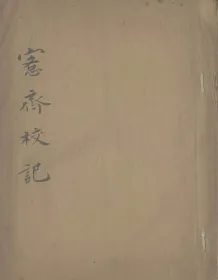 憲齋校記